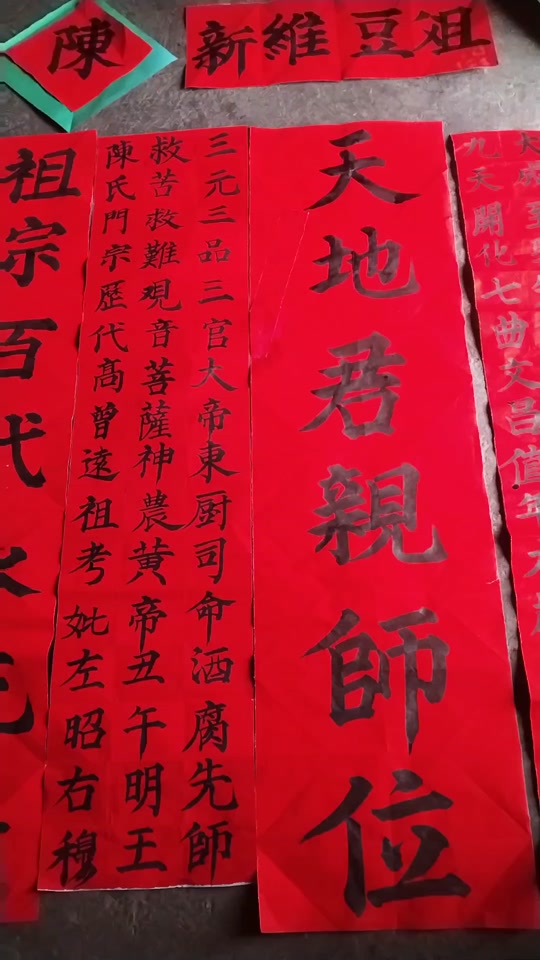 俎豆維新
陳
大成至
九天開化七曲文昌值年
天地君親師位
三元三品三官大帝東厨司命酒腐先師
救苦救難观音菩薩神農黄帝丑午明王
陳氏門宗歷代高曾遠祖考妣左昭右穆
祖宗百代